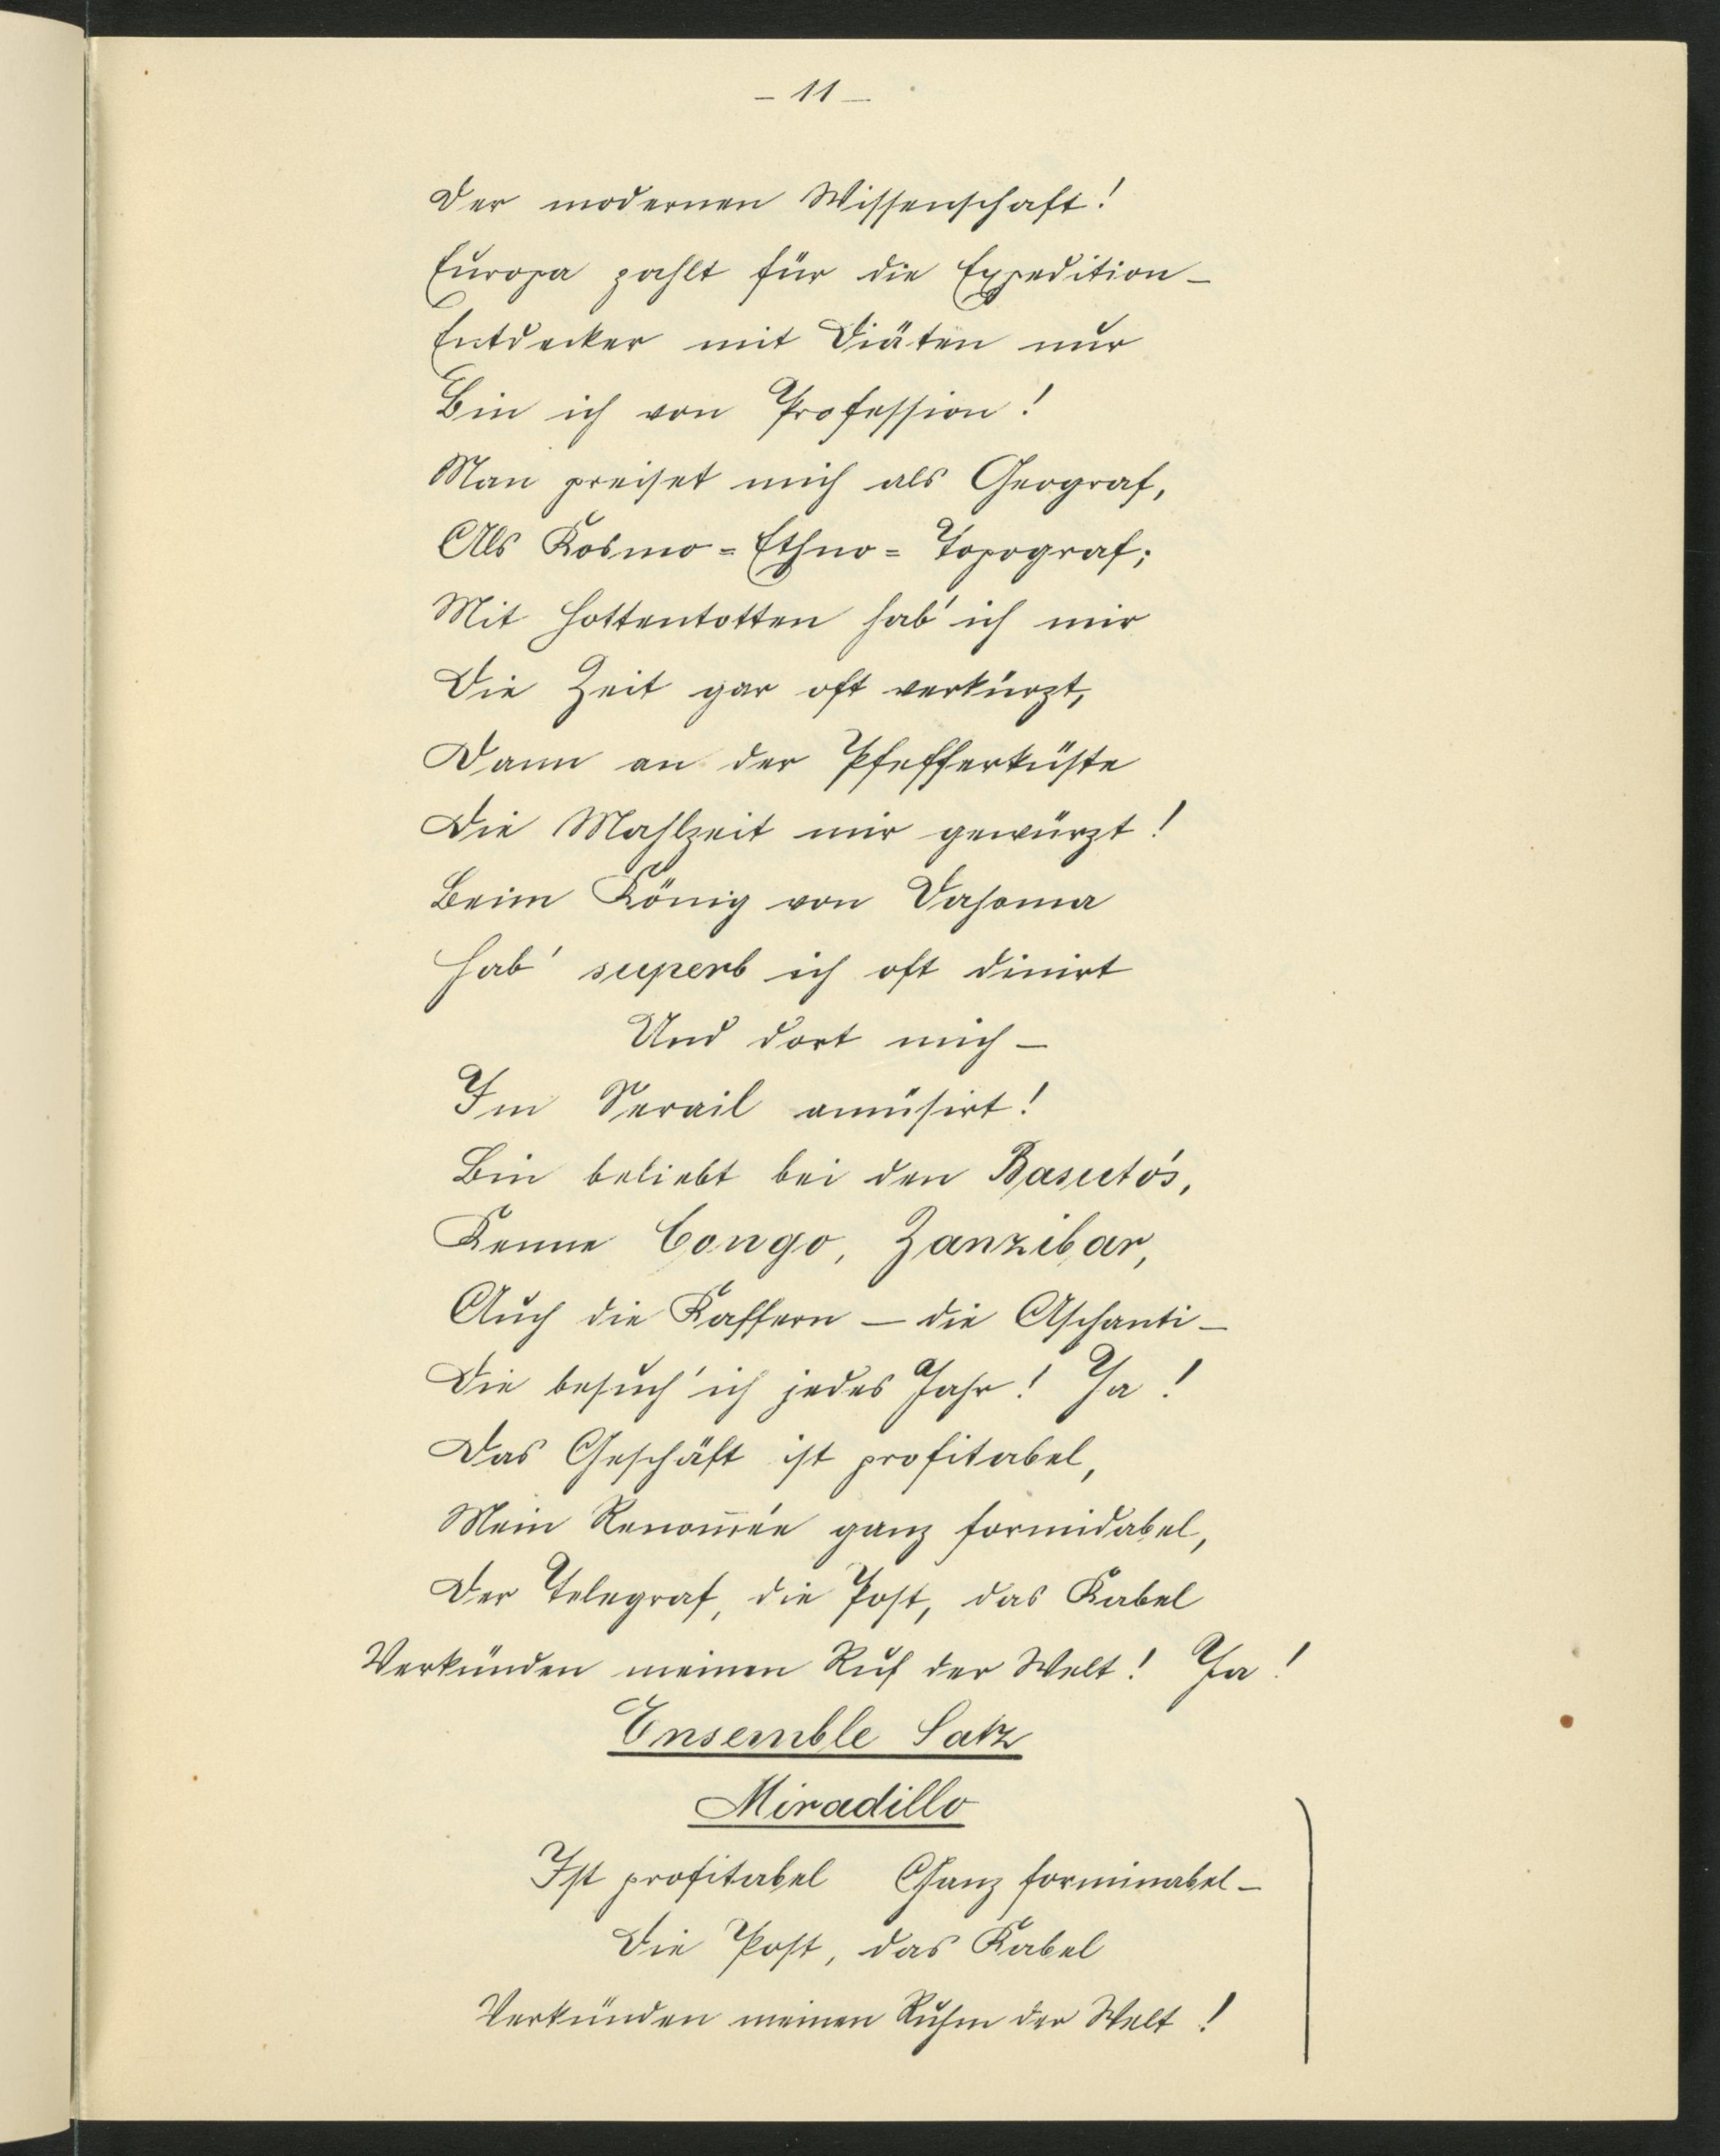 – 11 –
Der modernen Wissenschaft!
Europa zahlt für die Expedition –
Entdecker mit Diäten nur
Bin ich von Profession!
Man preiset mich als Geograf,
Als Kosmo=Ethno=Topograf;
Mit Hottentotten hab' ich mir
Die Zeit gar oft verkürzt,
Dann an der Pfefferküste
Die Mahlzeit mir gewürzt!
Beim König von Dahoma
Hab' superb ich oft dinirt
Und dort mich –
Im Serail amüsirt!
Bin beliebt bei den Basuto's,
Kenne Congo, Zanzibar,
Auch die Kaffern – die Aschanti –
Die besuch' ich jedes Jahr! Ja!
Das Geschäft ist profitabel,
Mein Renom̅ée ganz formidabel,
Der Telegraf, die Post, das Kabel
Verkünden meinen Ruf der Welt! Ja!
Ensemble Satz
Miradillo
Ist profitabel Ganz forminabel –
Die Post, das Kabel
Verkünden meinen Ruhm der Welt!